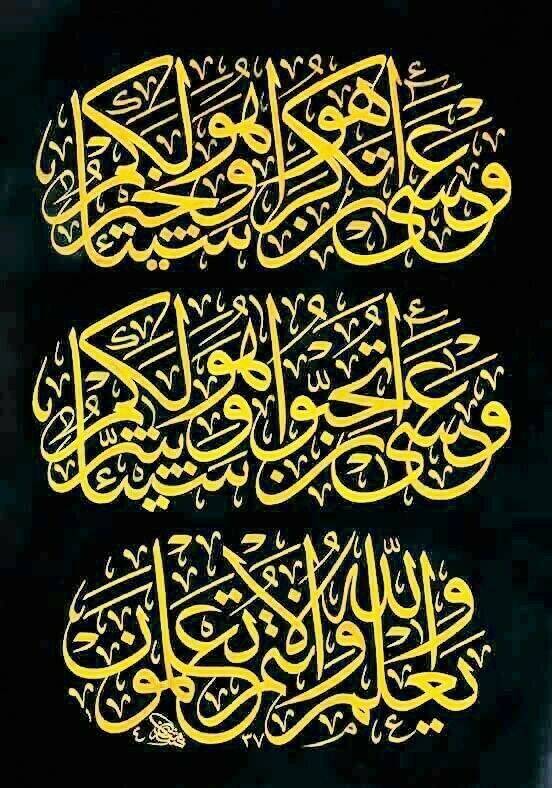 وَعَسَى أَن تَكْرَهُوا شَيْئًا وَهُوَ خَيْرٌ لَكُمْ
وَعَسَى أَن تُحِبُّوا شَيْئًا وَهُوَ شَرٌّ لَكُمْ
وَاللَّهُ يَعْلَمُ وَأَنْتُمْ لَا تَعْلَمُونَ